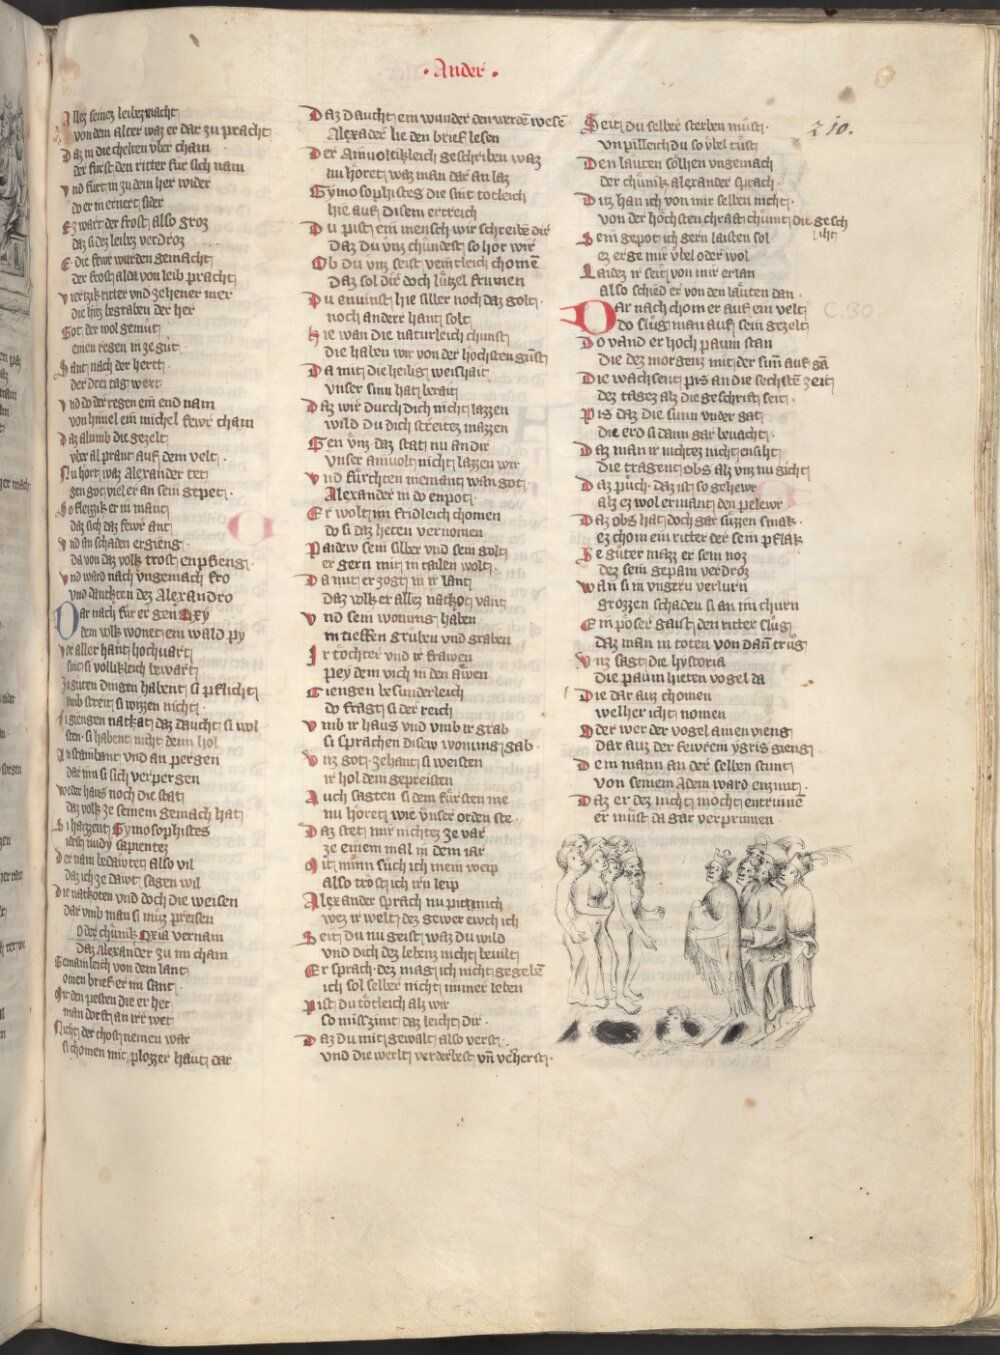 · Ander ·
210.
Allez seinez leibez macht
von dem alter waz er dar zu pracht
Daz in die chelten vber cham
der fürst den ritter fur sich nam
Vnd fürt in zu dem her wider
do er in ernert sider
Ez wart der frost also groz
daz si dez leibez verdroz
E die fewr wurden gemacht
der frost alda von leib pracht
Viertzik ritter vnd zehener mer
die hiez begraben der her
Got der wol gemut
einen regen in ze gut
Sant nach der hertt
der drei tag wert
Vnd do der regen ein end nam
von himel ein michel fewr cham
Daz alumb die gezelt
vber al prant auf dem velt
Nu hort waz Alexander tet
gen got viel er an sein gepet
So fleizzik er in mant
daz sich daz fewr ant
Vnd an schaden ergieng
da von daz volk trost enpfieng
Vnd ward nach vngemach fro
vnd danckten dez Alexandro
Dar nach für er gen Oxy
dem volk wonet ein wald py
Vor aller hant hochuart
sint si vollikleich bewart
Ze guten dingen habent si pflicht
vmb streit si wizzen nicht
Si giengen nackat daz daucht si wol
sten si habent nicht denn hol
An stainbant vnd an pergen
dar inn si sich verpergen
Weder haus noch die stat
daz volk ze seinem gemach hat
Si haizzent Gymosophistes
idest nudy sapientes
Der nam bedawtet also vil
daz ich ze dawt sagen wil
Die nackoten vnd doch die weisen
dar vmb man si muz preisen
Do der chünik Oxia vernam
Daz Alexander zu im cham
Gemainleich von dem lant
einen brief er im sant
Mit den pesten die er her
man dorst an irr wer
Nicht der chost nemen war
si chomen mit plozzer haut dar
Daz daucht ein wunder den werdē wesē
Alexāder lie den brief lesen
Der Ainvoltikleich geschriben waz
nu horet waz man dar an laz
Gymosophistes die sint totleich
hie auf disem ertreich
Du pist ein mensch wir schreibē dir
Daz du vnz chündest so hor wir
Ob du vnz seist veintleich chomē
Daz sol dir doch lützel frumen
Du envinst hie silber noch daz golt
noch anderr hant solt
Hie wan die naturleich chunst
die haben wir von der hochsten gunst
Da mit die heilig weishait
vnser sinn hat berait
Daz wir durch dich nicht lazzen
wild du dich streitez mazzen
Gen vnz daz stat nu an dir
vnser ainuolt nicht lazzen wir
Vnd fürchten niemant wan got
Alexander in do enpot
Er wolt in fridleich chomen
do si daz heten vernomen
Paidew sein silber vnd sein golt
er gern mit in tailen wolt
Da mit er zogt in ir lant
Daz volk er allez nackot vant
Vnd sein wonung haben
in tieffen gruben vnd graben
Ir tochter vnd ir frawen
pey dem vich in den awen
Giengen besunderleich
do fragt si der reich
Vmb ir haus vnd vmb ir grab
si sprachen disew wonung gab
Vnz got zehant si weisten
ir hol dem gepreisten
Auch sagten si dem fürsten me
nu horet wie vnser orden ste
Daz stet mir nichtez ze var
ze einem mal in dem iar
Mit minn such ich mein weip
also trost ich irn leip
Alexander sprach nu pit mich
wez ir welt dez gewer ewch ich
Seit du nu geist waz du wild
vnd dich dez lebenz nicht beuilt
Er sprach dez mag ich nicht gegebē
ich sol selber nicht immer leben
Pist du totleich alz wir
so misszimt daz leicht dir
Daz du mit gewalt also verst
vnd die werlt verderbest vn̄ v'herst
Seit du selber sterben müst
vnpilleich du so vbel tüst
Den lauten solhen vngemach
der chünik alexander sprach
Ditz han ich von mir selben nicht
von der hochsten chraft chümt die gesch
iht
Sein gepot ich gern laisten sol
ez erge mir vbel oder wol
Laidez ir seit von mir erlan
also schied er von den lauten dan
Dar nach chom er auf ein velt
do slug man auf sein gezelt
Do vand er hoch paum stan
die dez morgenz mit der sun̄ auf gā
Die wachsent pis an die sechstē zeit
dez tagez alz die geschrift seit
Pis daz die sunn vnder gat
die erd si dann gar bevacht
Daz man ir nichtez nicht ensiht
die tragent obs alz vns nu gicht
Daz puch daz ist so gehewr
alz ez wol ermant den pelewr
Daz obs hat doch gar süzzen smak
ez chom ein ritter der sein pflak
Ze guter mazz er sein noz
dez sein gepain verdroz
Wan si in vngern verlurn
grozzen schaden si an im churn
Ein poser gaist den ritter slug
daz man in toten von dan̄ trug
Vnz sagt die hystoria
die paum hieten vogel da
Die dar auz chomen
welher icht nomen
Ader wer der vogel ainen vieng
dar auz der fewrein ygris gieng
Dem mann an der selben stunt
von seinem Adem ward enzunt
Daz er dez nicht mocht entrinnē
er must da gar verprinnen
C. 30.